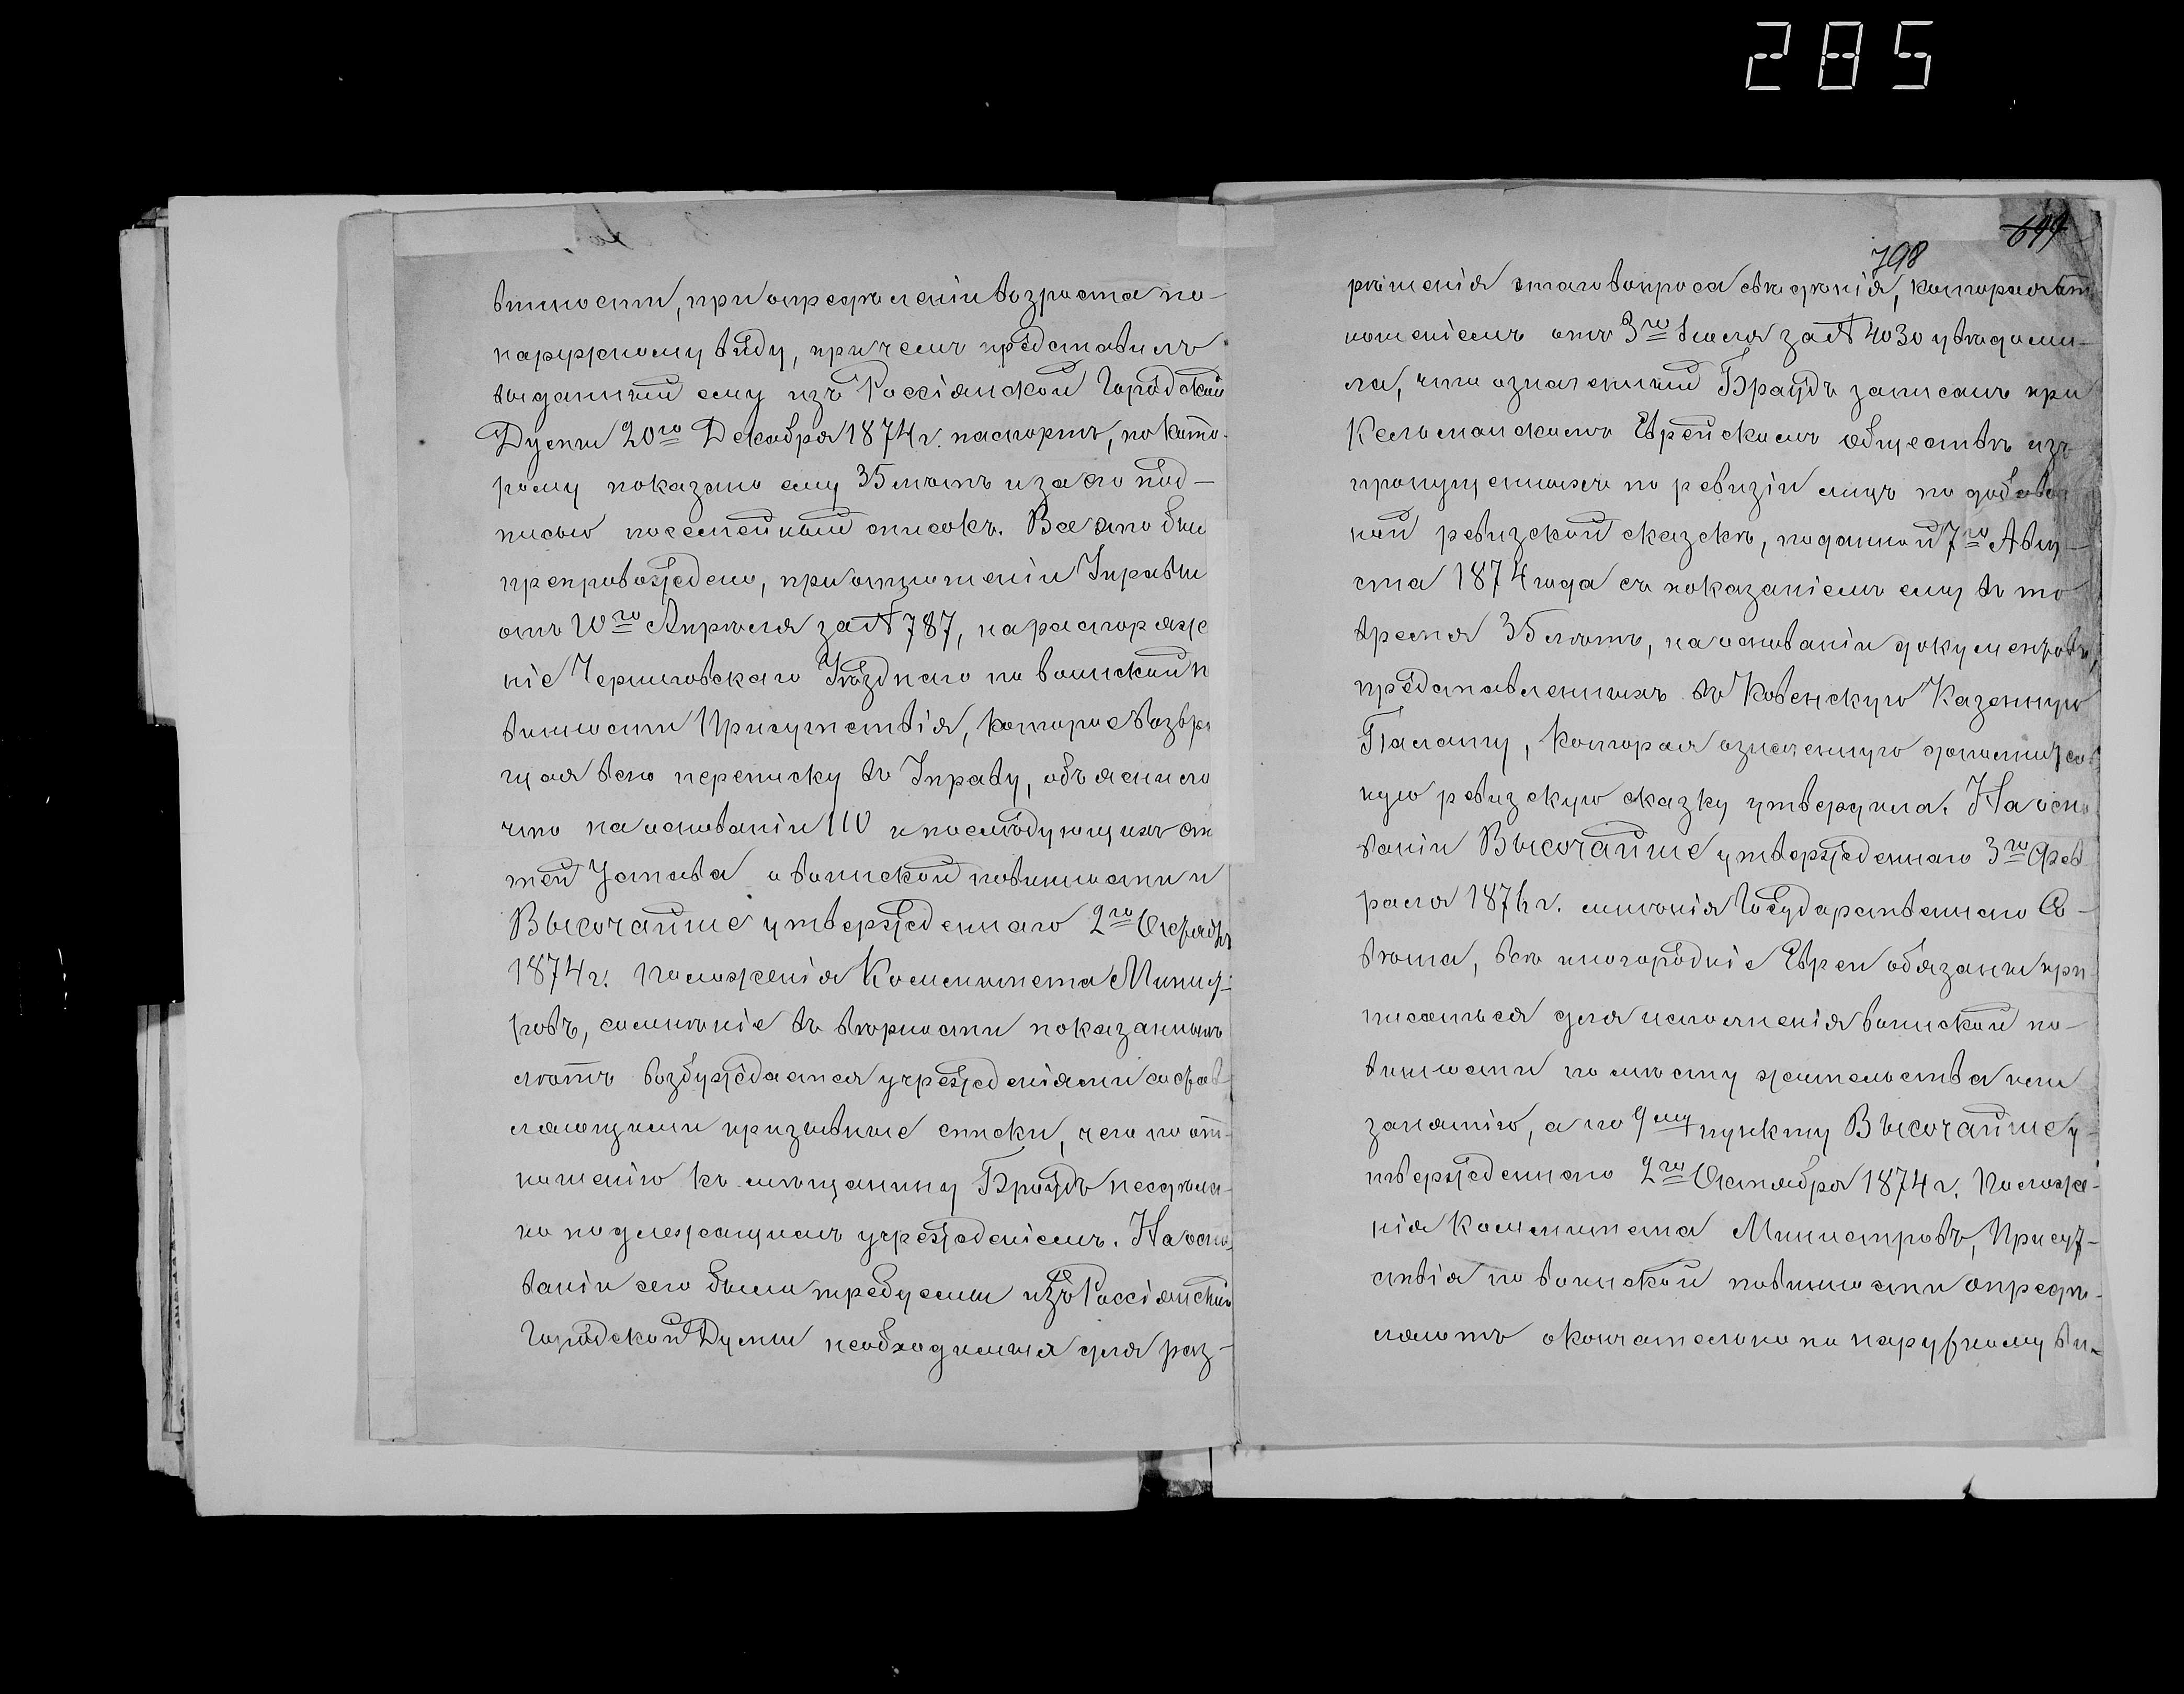 285
699
798
винности, при опредѣленіи возраста по-
наружному виду, при чемъ представилъ
выданный ему изъ Россіянской Городской
Думы 20го Декабря 1874 г. паспортъ, по кото-
рому показано ему 35 лѣтъ и за ея под-
писью посемейный списокъ. Все это было
препровождено, при отношеніи Управы
отъ 10го Апрѣля за № 787, на распоряже
ніе Черниговскаго Уѣзднаго по воинской п
винности Присутствія, которое возвра
щая всю переписку въ Управу, объяснило
что на основаніи 110 и послѣдующихъ ста
тей Устава о воинской повинности и
Высочайше утвержденнаго 2го Октября
1874 г. Положенія Комитета Минист-
ровъ, сомнѣніе въ вѣрности показанныхъ
лѣтъ возбуждается учрежденіями состав-
ляющими призывные списки, чего по от-
ношенію къ мѣщанину Браудъ не сдѣла-
но подлежащимъ учрежденіемъ. На осно-
ваніи сего были требуемы изъ Россіянской
Городской Думы необходимыя для раз-
рѣшенія этаго вопроса свѣдѣнія, которая от
ношеніемъ отъ 3го Іюля за № 4030 увѣдоми-
ла, что означенный Браудъ записанъ при
Кельманскомъ Еврейскомъ обществѣ изъ
пропущенныхъ по ревизіи лицъ по добавоч
ной ревизской сказкѣ, поданной 7го Авгу-
ста 1874 года съ показаніемъ ему въ то
время 35 лѣтъ, на основаніи документовъ,
представленныхъ въ Ковенскую Казенную
Палату, которая означенную дополнитель
ную ревизскую сказку утвердила. На осно
ваніи Высочайше утвержденнаго 3го Фев-
раля 1876 г. мнѣнія Государственнаго Со-
вѣта, всѣ иногородніе Евреи обязаны при-
писаться для исполненія воинской по-
винности по мѣсту жительства или
занятію, а по 9му пункту Высочайше у-
твержденнаго 2го Октября 1874 г. Положе-
нія Комитета Министровъ, Присут-
ствія по воинской повинности опредѣ-
ляютъ окончательно по наружному ви-